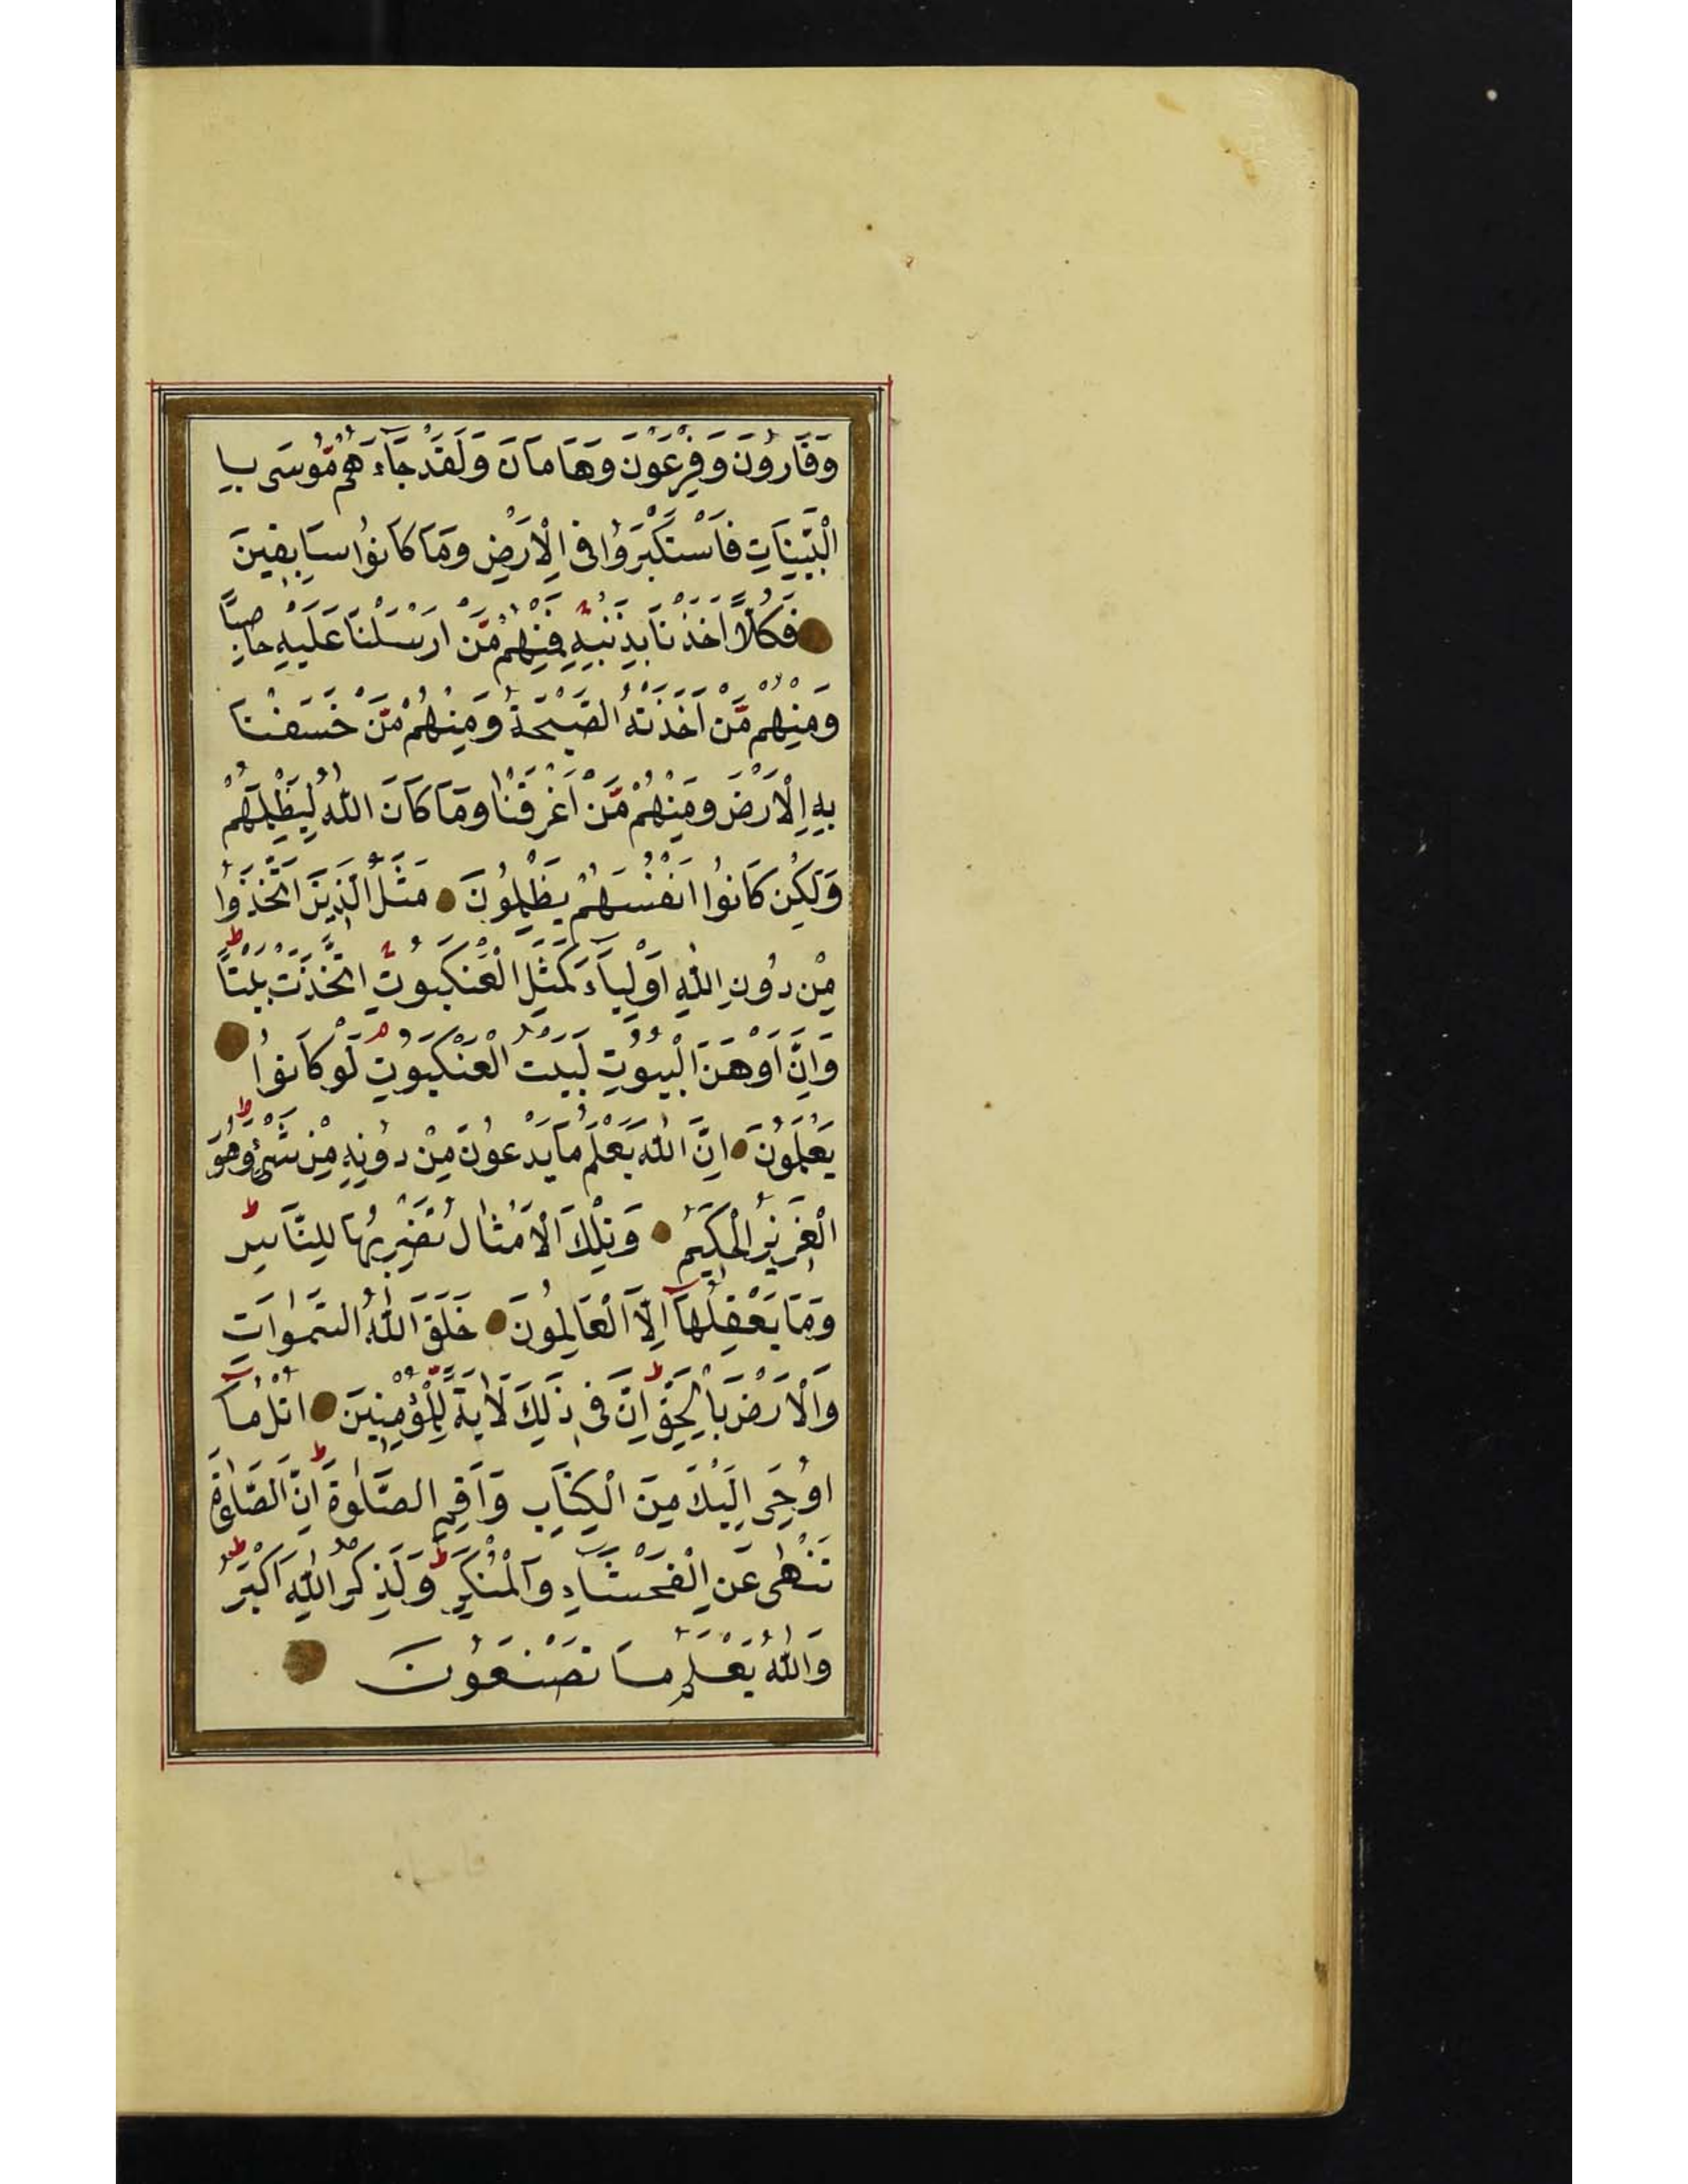 وَقَارُونَ وَفِرْعَوْنَ وَهَامَانَ وَلَقَدْ جَآءَهُمْ مُّوسَى بِا
الْبَيِّنَاتِ فَاسْتَكْبَرُوا فِي الْاَرْضِ وَمَا كَانُوا سَابِقِينَ
فَكُلًّا اَخَذْنَا بِذَنْبِهِ فَمِنْهُمْ مَّنْ اَرْسَلْنَا عَلَيْهِ حَاصِبًا
وَمِنْهُمْ مَّنْ اَخَذَتْهُ الصَّيْحَةُ وَمِنْهُمْ مَّنْ خَسَفْنَا
بِهِ الْاَرْضَ وَمِنْهُمْ مَّنْ اَغْرَقْنَا وَمَا كَانَ اللّٰهُ لِيَظْلِمَهُمْ
وَلٰكِنْ كَانُوا اَنْفُسَهُمْ يَظْلِمُونَ مَثَلُ الَّذِينَ اتَّخَذُوا
مِنْ دُونِ اللّٰهِ اَوْلِيَآءَ كَمَثَلِ الْعَنْكَبُوتِ اتَّخَذَتْ بَيْتًا
وَاِنَّ اَوْهَنَ الْبُيُوتِ لَبَيْتُ الْعَنْكَبُوتِ لَوْ كَانُوا
يَعْلَمُونَ اِنَّ اللّٰهَ يَعْلَمُ مَا يَدْعُونَ مِنْ دُونِهِ مِنْ شَيْءٍ وَهُوَ
الْعَزِيزُ الْحَكِيمُ وَتِلْكَ الْاَمْثَالُ نَضْرِبُهَا لِلنَّاسِ
وَمَا يَعْقِلُهَآ اِلَّا الْعَالِمُونَ خَلَقَ اللّٰهُ السَّمٰوَاتِ
وَالْاَرْضَ بِالْحَقِّ اِنَّ فِي ذٰلِكَ لَاٰيَةً لِّلْمُؤْمِنِينَ اُتْلُ مَآ
اُوحِيَ اِلَيْكَ مِنَ الْكِتَابِ وَاَقِمِ الصَّلٰوةَ اِنَّ الصَّلٰوةَ
تَنْهٰى عَنِ الْفَحْشَآءِ وَالْمُنْكَرِ وَلَذِكْرُ اللّٰهِ اَكْبَرُ
وَاللّٰهُ يَعْلَمُ مَا تَصْنَعُونَ